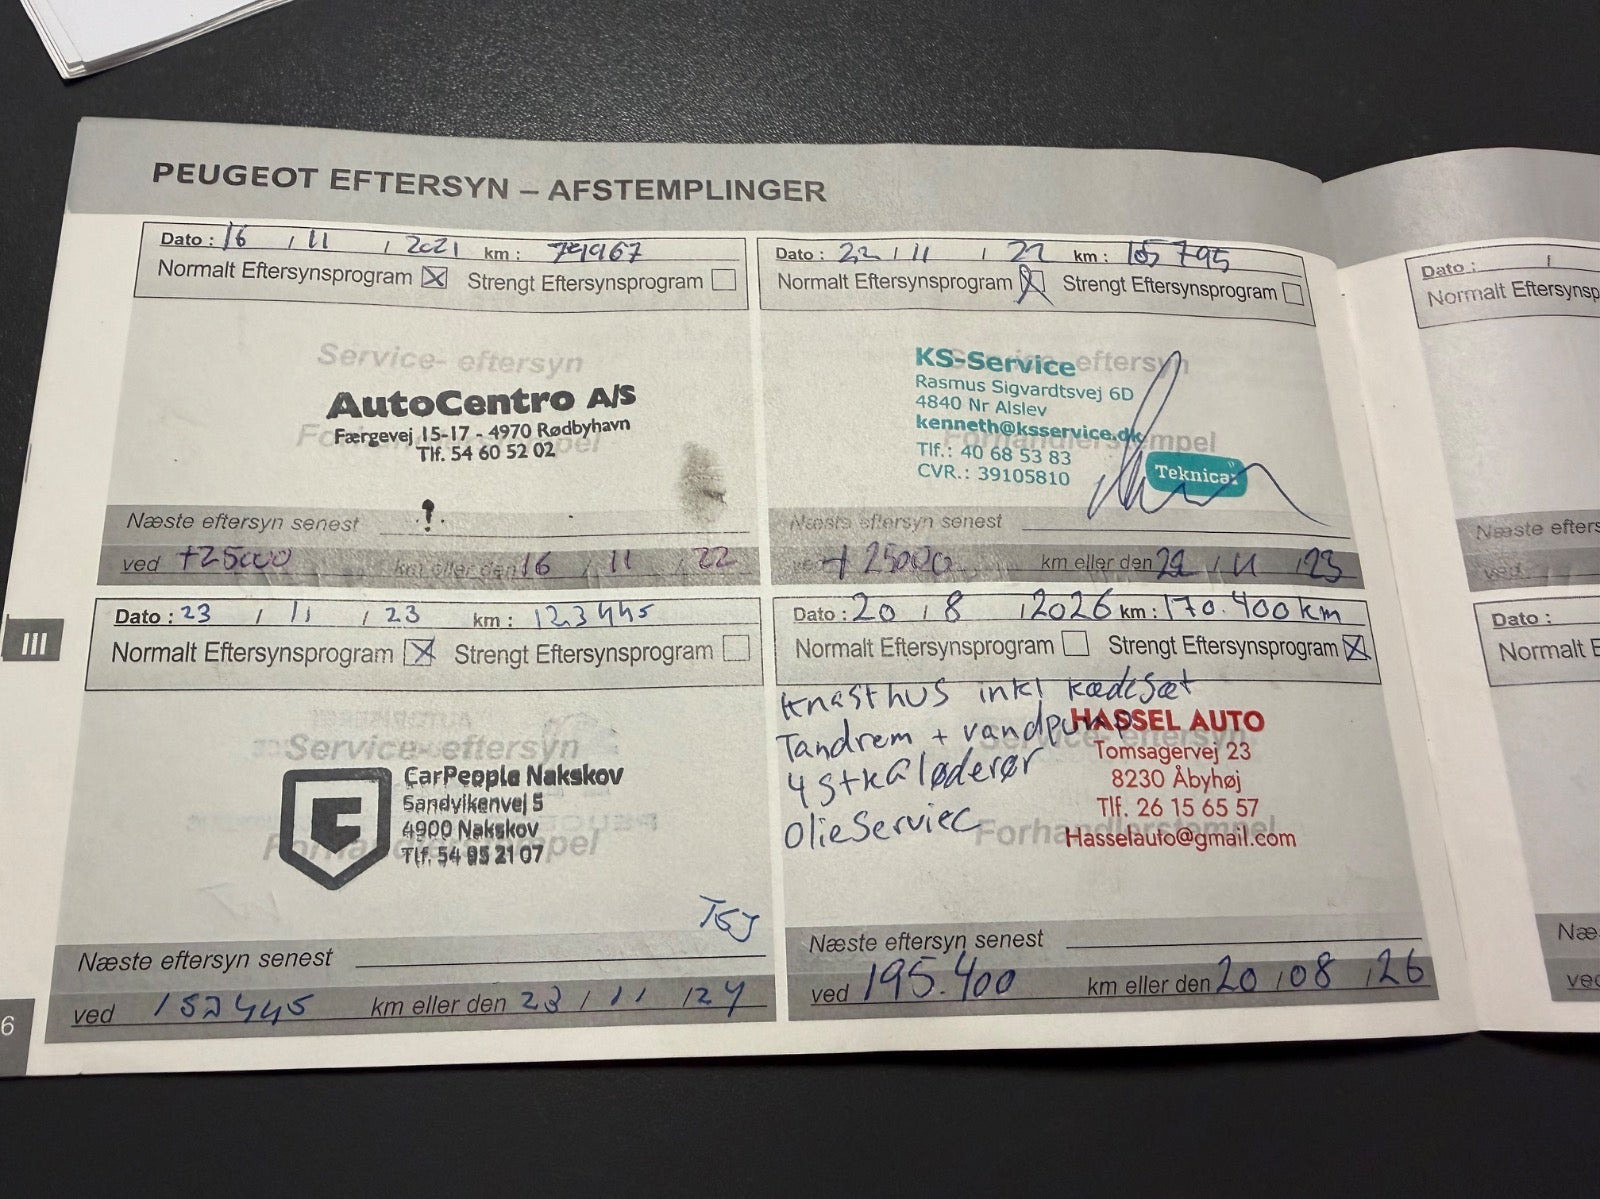 PEUGEOT EFTERSYN – AFSTEMPLINGER
Dato : 16 / 11 / 2021 km :
Normalt Eftersynsprogram ☒ Strengt Eftersynsprogram ☐
Service- eftersyn
AutoCentro A/S
Færgevej 15-17 - 4970 Rødbyhavn
Tlf. 54 60 52 02
Næste eftersyn senest
ved +25000 km eller den 16 / 11 / 22
Dato : 22 / 11 / 22 km : 105795
Normalt Eftersynsprogram ☒ Strengt Eftersynsprogram ☐
Service- eftersyn
KS-Service
Rasmus Sigvardtsvej 6D
4840 Nr Alslev
kenneth@ksservice.dk
Forhandlerstempel
Tlf.: 40 68 53 83
CVR.: 39105810
Teknicar
Næste eftersyn senest
ved +25000 km eller den 22 / 11 / 23
III
Dato : 23 / 11 / 23 km : 123445
Normalt Eftersynsprogram ☒ Strengt Eftersynsprogram ☐
Service- eftersyn
CarPeople Nakskov
Sandvikenvej 5
4900 Nakskov
Forhandlerstempel
Tlf. 54 95 21 07
TGJ
Næste eftersyn senest
ved 152445 km eller den 23 / 11 / 24
Dato : 20 / 8 / 2026 km : 170.400 km
Normalt Eftersynsprogram ☐ Strengt Eftersynsprogram ☒
Knasthus inkl kædesæt
Tandrem + vandpump
4 stk gløderør
Olieserviec
HASSEL AUTO
Service- eftersyn
Tomsagervej 23
8230 Åbyhøj
Tlf. 26 15 65 57
Forhandlerstempel
Hasselauto@gmail.com
Næste eftersyn senest
ved 195.400 km eller den 20 / 08 / 26
6
Dato : /
Normalt Eftersynsp
Næste efters
ved
Dato :
Normalt E
Næs
ved